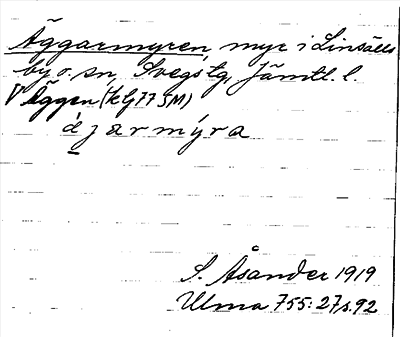 Äggarmyren, myr i Linsälls
by o. sn, Svegs tg, Jämtl. l.
V Äggen (kbl 77 SM)
ä j a r m ý r a
S. Åsander 1919
Ulma 755:27 s. 92